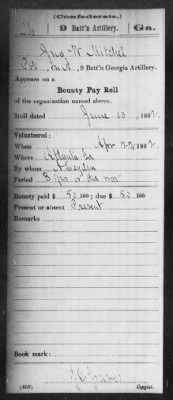 (Confederate.)
M 9 Batt'n Artillery. Ga.
Jno. W. Mitchel
Pvt, Co. A, 9 Batt'n Georgia Artillery.
Appears on a
Bounty Pay Roll
of the organization named above.
Roll dated June 10, 1862.
Volunteered:
When Apr 22, 1862.
Where Atlanta Ga
By whom A Leyden
Period 3 yrs or the war
Bounty paid $ 50/100; due $ 50/100
Present or absent Present
Remarks
Book mark:
(655) Copyist.